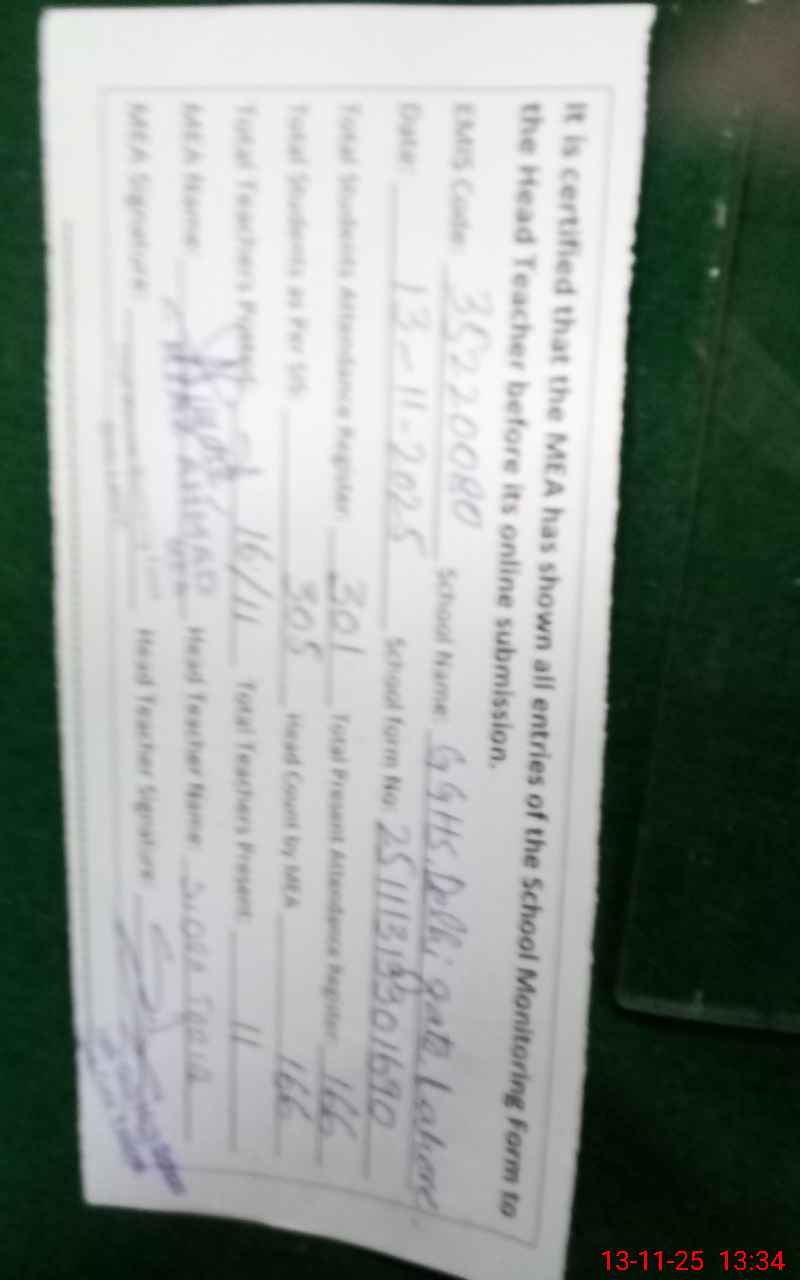 It is certified that the MEA has shown all entries of the School Monitoring Form to
the Head Teacher before its online submission.
EMIS Code: 35220080 School Name: GGHS. Delhi gate Lahore.
Date: 13-11-2025 School form No:
Total Students Attendance Register: 301 Total Present Attendance Register: 166
Total Students as Per SIS: 305 Head Count by MEA 166
Total Teachers Posted: 16/11 Total Teachers Present: 11
MEA Name: AHMAD Head Teacher Name:
MEA Signature: Head Teacher Signature:
13-11-25 13:34